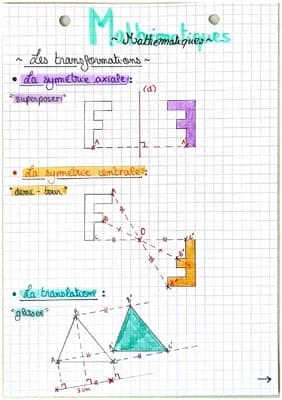 Mathématiques
~ Mathématiques ~
~ Les transformations ~
• La symétrie axiale :
"superposer"
(d)
A
A'
• La symétrie centrale :
"demi-tour"
A
B
C
O
C'
B'
A'
• La translation :
"glisser"
B
B'
A
A'
C
C'
3 cm
→